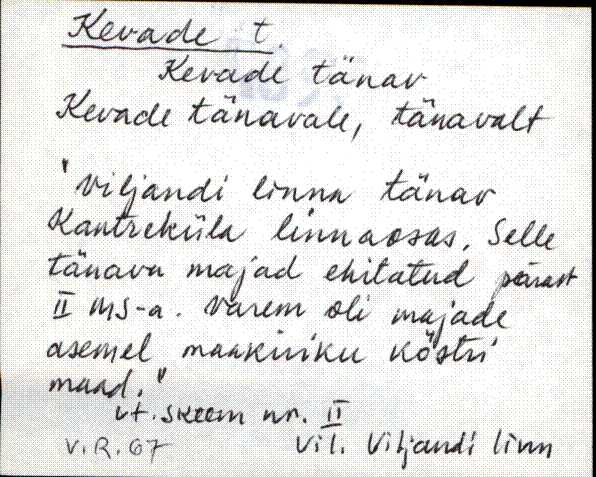 Kevade t.
Kevade tänav
Kevade tänavale, tänavalt
"Viljandi linna tänav
Kantreküla linnaosas. Selle
tänava majad ehitatud pärast
II MS-a. Varem oli majade
asemel maakiriku köstri
maad."
vt. skeem nr. II
V.R. 67 Vil. Viljandi linn